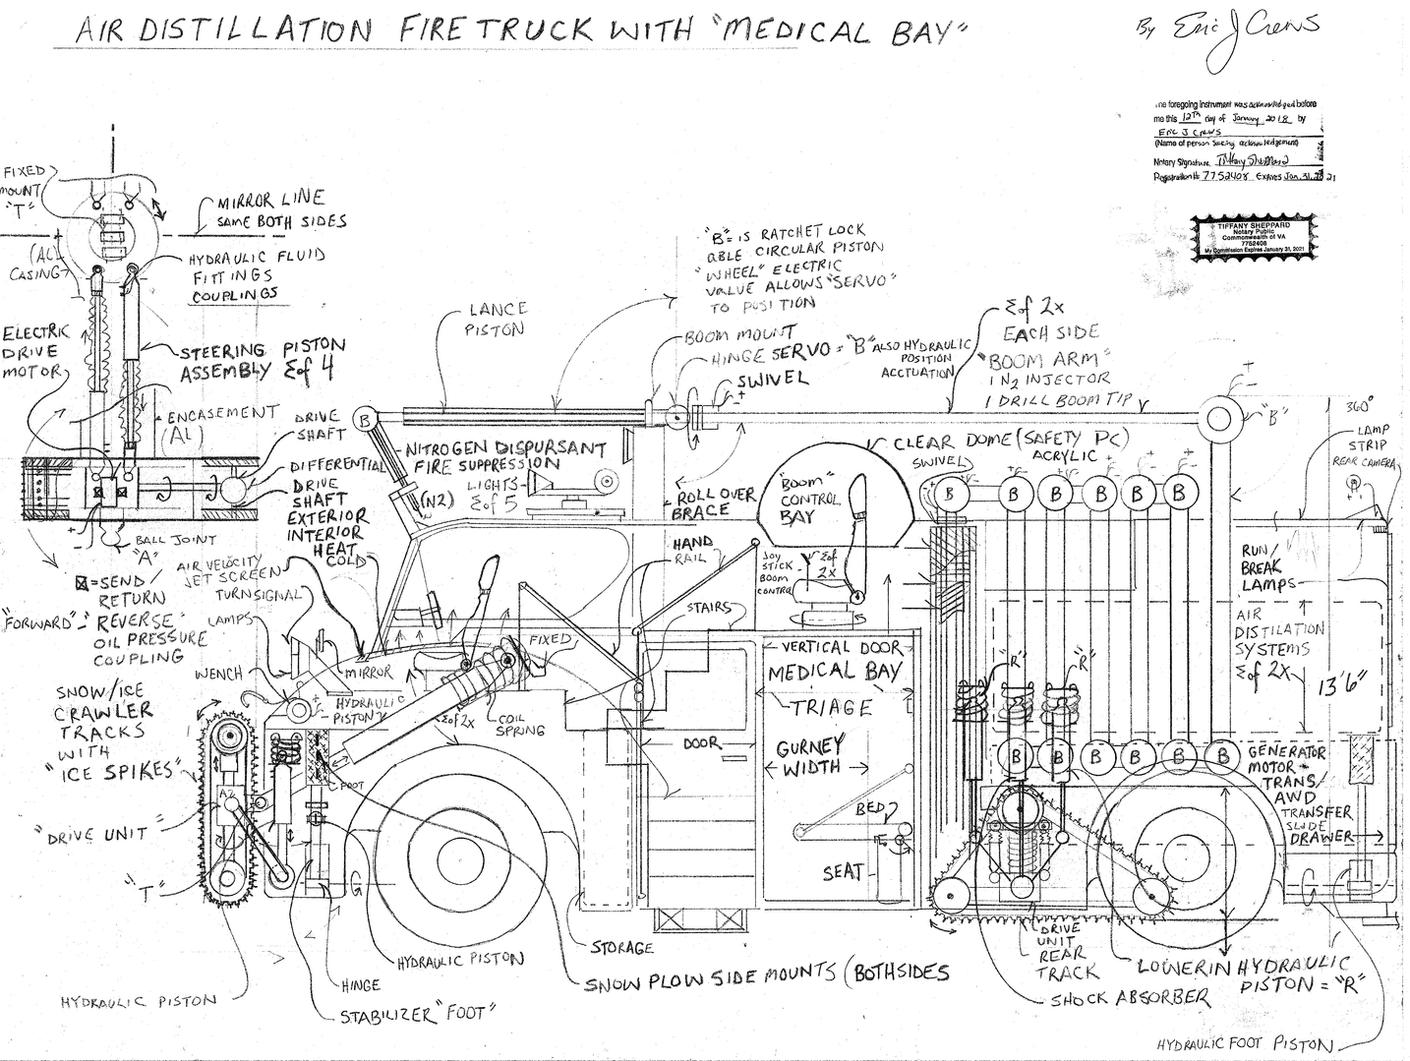 AIR DISTILLATION FIRE TRUCK WITH "MEDICAL BAY"
By Eric J Crews
ne foregoing instrument was acknowledged before
me this 12TH day of January 2018 by
ERIC J CREWS
(Name of person seeking acknowledgement)
Notary Signature Tiffany Sheppard
Registration # 7752408 Expires Jan. 31, 2021
TIFFANY SHEPPARD
Notary Public
Commonwealth of VA
7752408
My Commission Expires January 31, 2021
FIXED
MOUNT
"T"
MIRROR LINE
SAME BOTH SIDES
(AL)
CASING
HYDRAULIC FLUID
FITTINGS
COUPLINGS
ELECTRIC
DRIVE
MOTOR
STEERING PISTON
ASSEMBLY Σof 4
ENCASEMENT
(AL)
DRIVE
SHAFT
DIFFERENTIAL
DRIVE
SHAFT
EXTERIOR
INTERIOR
HEAT
COLD
BALL JOINT
"A"
=SEND/
RETURN
"FORWARD"-
REVERSE
OIL PRESSURE
COUPLING
AIR VELOCITY
JET SCREEN
TURN SIGNAL
LAMPS
WENCH
MIRROR
HYDRAULIC
PISTON
LANCE
PISTON
"B"= IS RATCHET LOCK
ABLE CIRCULAR PISTON
"WHEEL" ELECTRIC
VALVE ALLOWS "SERVO"
TO POSITION
BOOM MOUNT
HINGE SERVO = "B" ALSO HYDRAULIC
POSITION
ACCTUATION
SWIVEL
Σof 2x
EACH SIDE
"BOOM ARM"
1 N2 INJECTOR
1 DRILL BOOM TIP
B
"B"
360°
LAMP
STRIP
REAR CAMERA
NITROGEN DISPURSANT
FIRE SUPPRESSION
(N2)
LIGHTS
Σof 5
ROLL OVER
BRACE
CLEAR DOME (SAFETY PC)
ACRYLIC
SWIVEL
"BOOM"
CONTROL
BAY
JOY
STICK
BOOM
CONTROL
Σof
2x
B
B B B B B B
HAND
RAIL
STAIRS
FIXED
Σof 2x
COIL
SPRING
VERTICAL DOOR
MEDICAL BAY
TRIAGE
DOOR
GURNEY
WIDTH
BED
SEAT
"R"
"R"
RUN/
BREAK
LAMPS
AIR
DISTILATION
SYSTEMS
Σof 2x
13'6"
B B B B B B
GENERATOR
MOTOR
TRANS/
AWD
TRANSFER
SLIDE
DRAWER
SNOW/ICE
CRAWLER
TRACKS
WITH
"ICE SPIKES"
A2
"DRIVE UNIT"
"T"
FOOT
STORAGE
HYDRAULIC PISTON
HYDRAULIC PISTON
HINGE
STABILIZER "FOOT"
SNOW PLOW SIDE MOUNTS (BOTHSIDES
DRIVE
UNIT
REAR
TRACK
SHOCK ABSORBER
LOWERIN HYDRAULIC
PISTON = "R"
HYDRAULIC FOOT PISTON